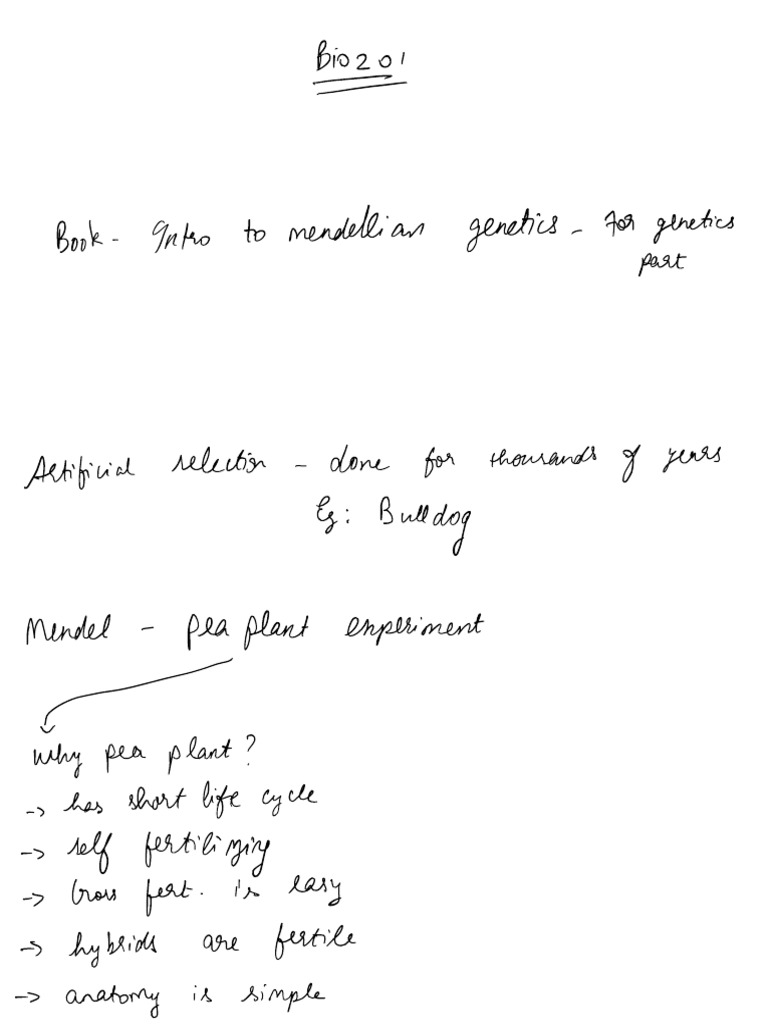 Bio201
Book - Intro to mendellian genetics - For genetics
part
Artificial selection - done for thousands of years
Eg: Bulldog
Mendel - pea plant experiment
Why pea plant?
-> has short life cycle
-> self fertilizing
-> Cross fert. is easy
-> hybrids are fertile
-> anatomy is simple